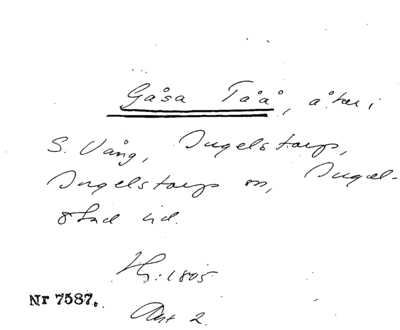 Gåsa Tåå, åker i
S. Vång, Ingelstorp,
Ingelstorps sn, Ingel-
stad hd.
Hy: 1805
Akt 2.
Nr 7587.